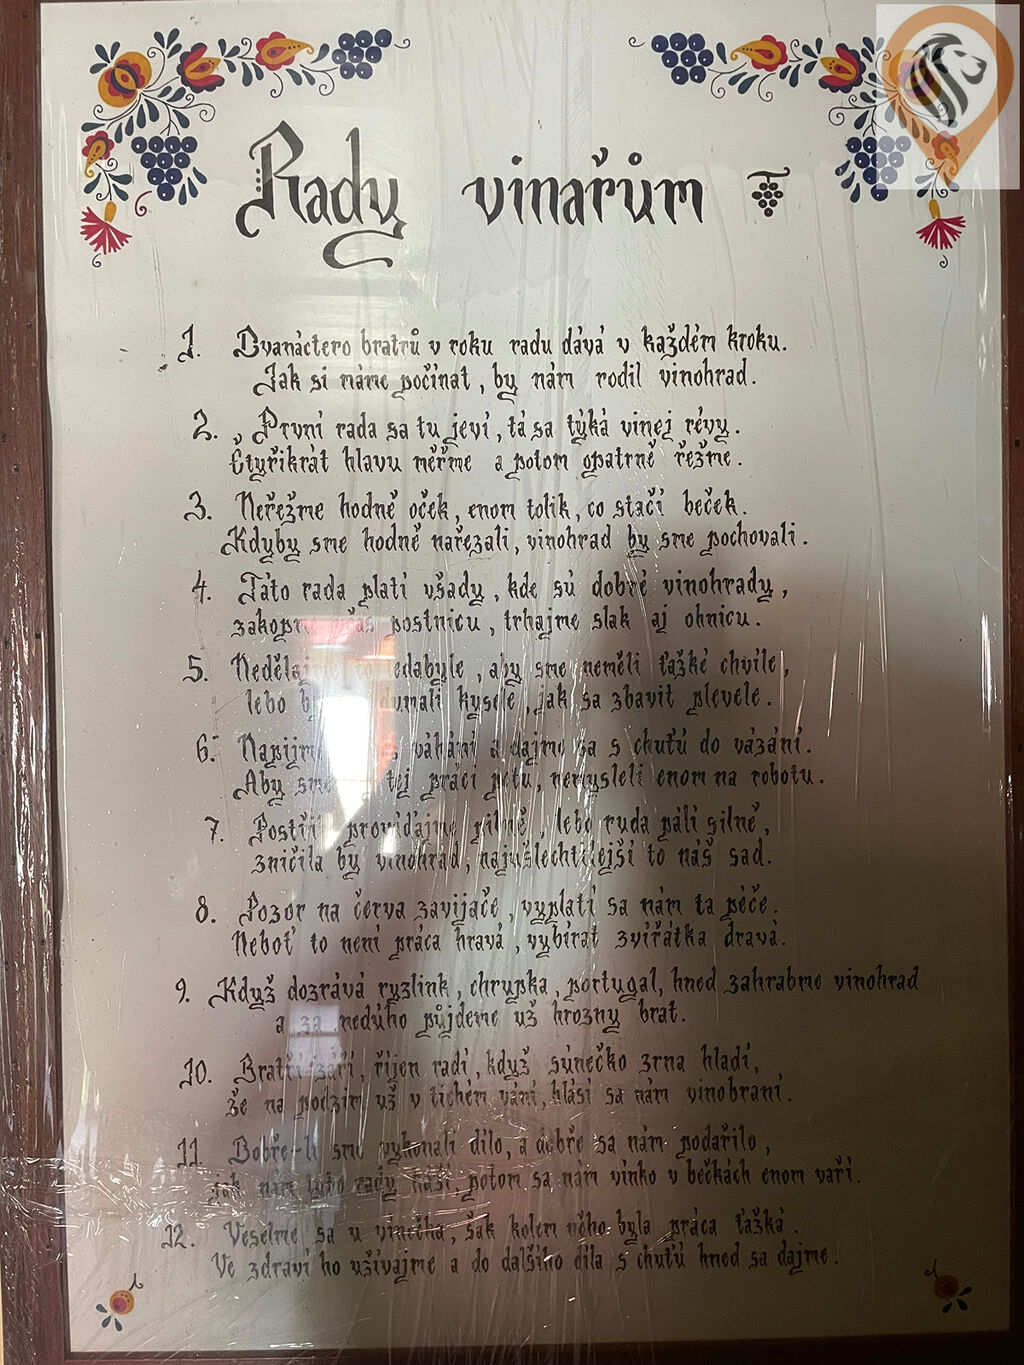 Rady vinařům
1. Dvanáctero bratrů v roku radu dává v každém kroku.
Jak si máme počínat, by nám rodil vinohrad.
2. První rada sa tu jeví, tá sa týká vinej révy.
Čtyřikrát hlavu měřme a potom opatrně řežme.
3. Neřežme hodně oček, enom tolik, co stačí beček.
Kdyby sme hodně nařezali, vinohrad by sme pochovali.
4. Táto rada platí všady, kde sú dobré vinohrady,
postnicu, trhajme slak aj ohnicu.
5. aby sme neměli ťažké chvíle,
lebo kysele, jak sa zbavit plevele.
6. váhání a dajme sa s chuťú do vázání.
Aby sme tej práci potu, nemysleli enom na robotu.
7. Postřik providajme pilně, lebo ruda pálí silně,
zničila by vinohrad, najušlechtilejší to náš sad.
8. Pozor na červa zavijače, vyplatí sa nám ta péče.
Neboť to není práca hravá, vybírat zvířátka dravá.
9. Když dozrává ryzlink, chrupka, portugal, hned zahrabme vinohrad
a za nedúho půjdeme už hrozny brat.
10. Bratři září, říjen radí, když súnečko zrna hladí,
že na podzim už v tichém vání, hlásí sa nám vinobraní.
11 Dobře-li sme vykonali dílo, a dobře sa nám podařilo,
jak nám tyto rady káží, potom sa nám vínko v bečkách enom vaří.
12. Veselme sa u vinečka, šak kolem něho byla práca ťažká.
Ve zdraví ho užívajme a do dalšího díla s chuťú hned sa dajme.